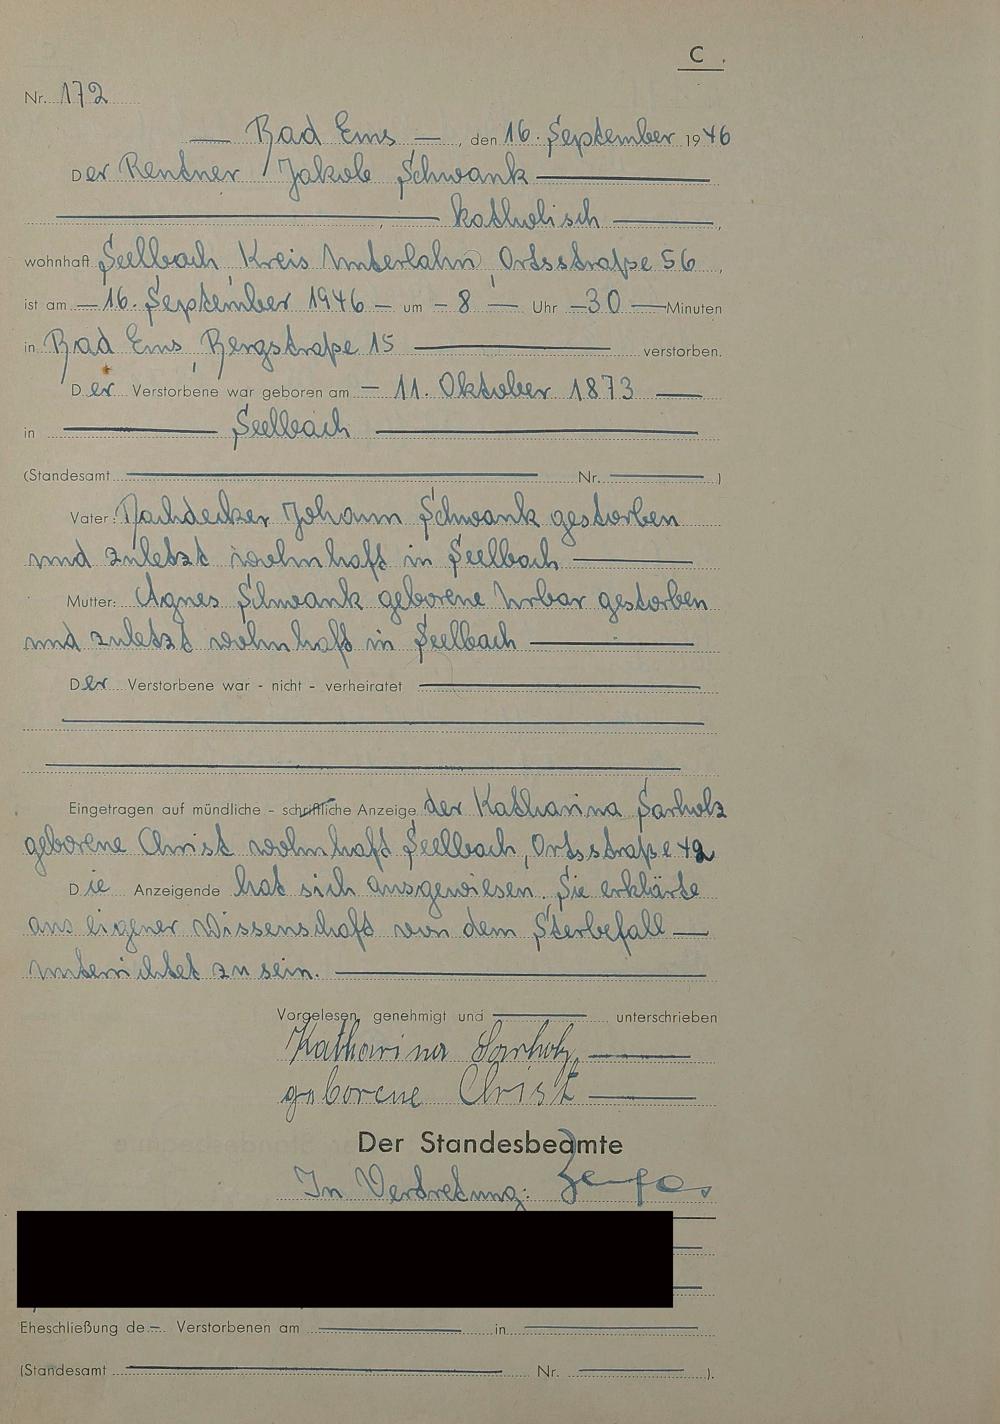 C.
Nr. 172
— Bad Ems —, den 16. September 1946
Der Rentner Jakob Schwank —
— , — katholisch —,
wohnhaft Seelbach, Kreis Unterlahn, Ortsstraße 56,
ist am — 16. September 1946 — um — 8 — Uhr — 30 — Minuten
in Bad Ems, Bergstraße 15 — verstorben.
Der Verstorbene war geboren am — 11. Oktober 1873 —
in — Seelbach —
(Standesamt — Nr. — )
Vater: Dachdecker Johann Schwank gestorben
und zuletzt wohnhaft in Seelbach —
Mutter: Agnes Schwank geborene Urbar gestorben
und zuletzt wohnhaft in Seelbach —
Der Verstorbene war - nicht - verheiratet —
Eingetragen auf mündliche - schriftliche Anzeige der Katharina Sarholz
geborene Christ wohnhaft Seelbach, Ortsstraße 42
Die Anzeigende hat sich ausgewiesen. Sie erklärte
aus eigener Wissenschaft von dem Sterbefall —
unterrichtet zu sein. —
Vorgelesen, genehmigt und — unterschrieben
Katharina Sarholz, —
geborene Christ —
Der Standesbeamte
In Vertretung:
Eheschließung de — Verstorbenen am — in —
(Standesamt — Nr. — ).